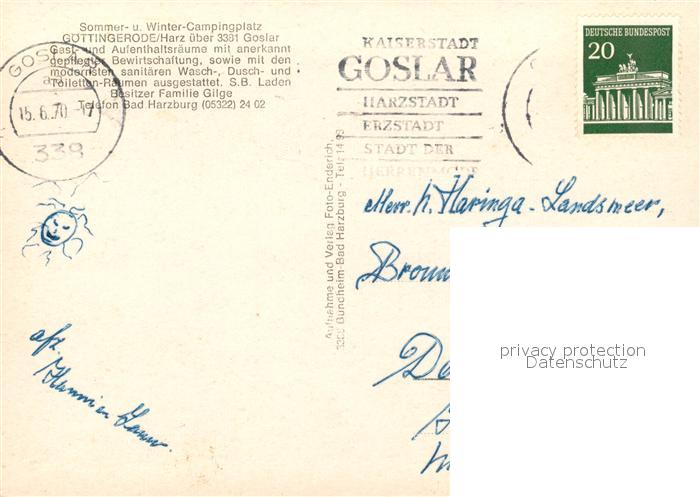 Sommer- u. Winter-Campingplatz
GÖTTINGERODE/Harz über 3381 Goslar
Gast- und Aufenthaltsräume mit anerkannt
gepflegter Bewirtschaftung, sowie mit den
modernsten sanitären Wasch-, Dusch- und
Toiletten-Räumen ausgestattet. S.B. Laden
Besitzer Familie Gilge
Telefon Bad Harzburg (05322) 24 02
GOSLAR
15.6.70-17
338
KAISERSTADT
GOSLAR
HARZSTADT
ERZSTADT
STADT DER
HERRENMODE
DEUTSCHE BUNDESPOST
20
Aufnahme und Verlag Foto-Enderich,
Bündheim-Bad Harzburg - Tel.
Haringa-Landsmeer,
afz.
privacy protection
Datenschutz